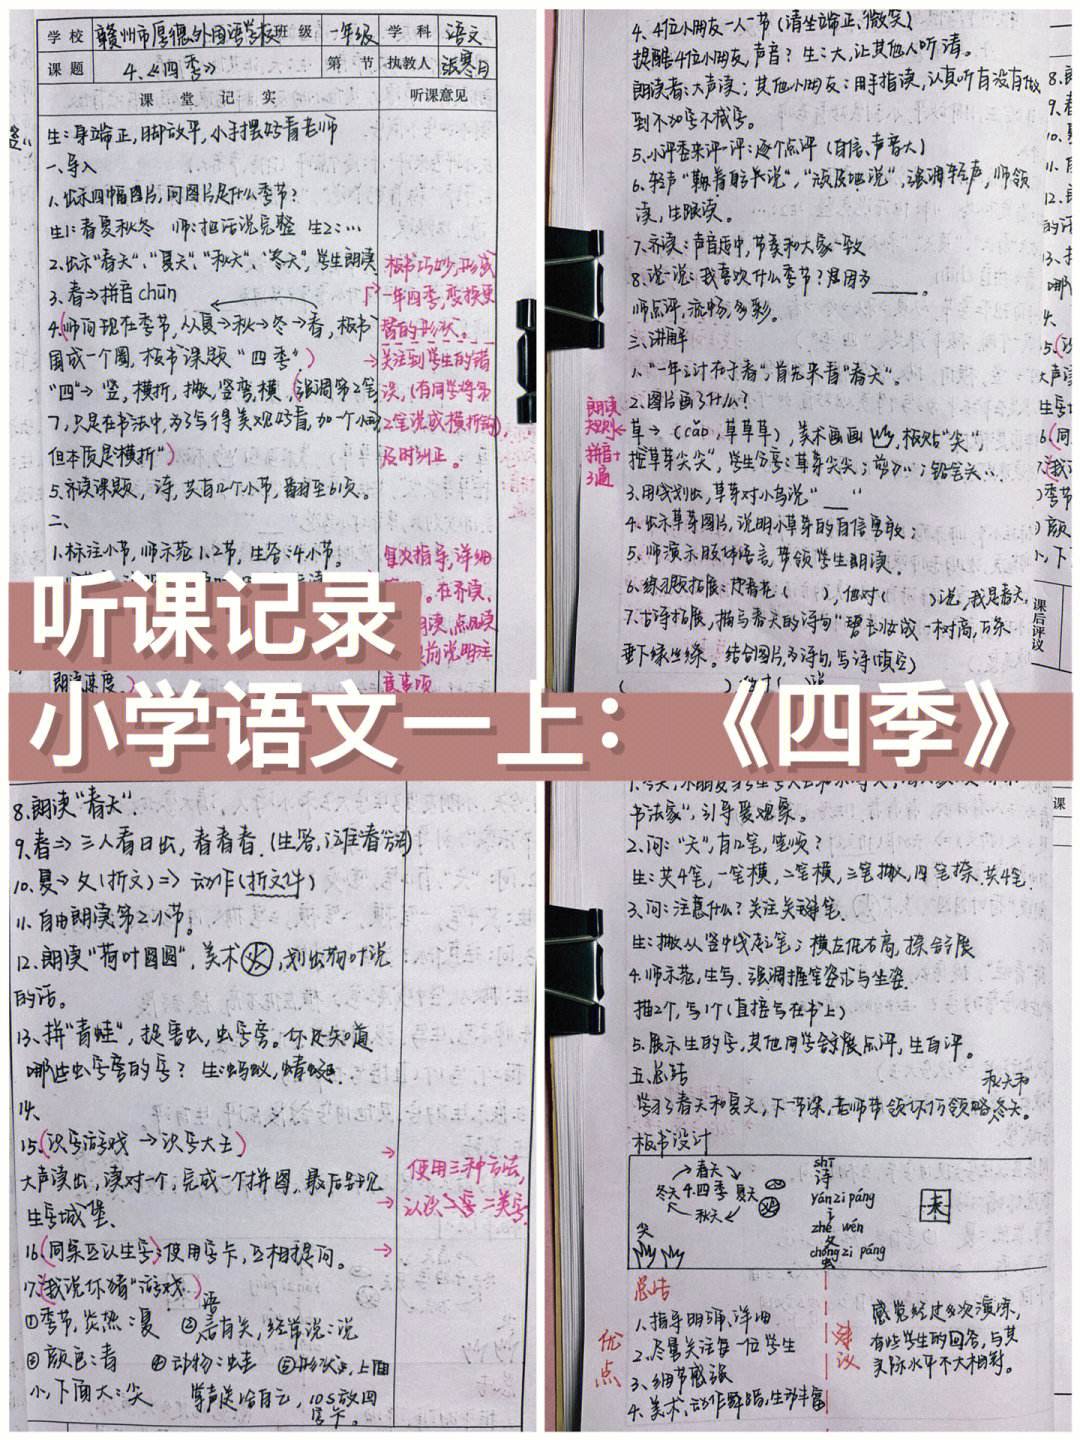 学校 赣州市厚德外国语学校 班级 一年级 学科 语文
课题 4、《四季》 第 节 执教人
课堂记实 听课意见
生:身端正,脚放平,小手摆好看老师
一、导入
1、出示四幅图片,问图片是什么季节?
生1:春夏秋冬 师:把话说完整 生2:…
2、出示“春天”、“夏天”、“秋天”、“冬天”,学生朗读
3、春→拼音chūn
4.(师问现在季节,从夏→秋→冬→春,板书
围成一个圈,板书课题“四季”)
“四”→竖,横折,撇,竖弯,横,(强调第2笔
但本质是横折”)
5、齐读课题,诗,共有几个小节,翻到至61页。
板书巧妙,形成
一年四季,变换更
替的形状。
关注到学生的错
误,(有同学将第
2笔说成横折钩),
及时纠正。
二、
1、标注小节,师示范1、2节,生答:4小节。
每次指导,详细
在齐读、
朗读速度。)
意事项
听课记录
小学语文一上:《四季》
4、4位小朋友一人一节(请坐端正、微笑)
提醒4位小朋友,声音?生:大,让其他人听清。
朗读者:大声读;其他小朋友:用手指读,认真听有没有做
到不加字不减字。
5、小评委来评一评:逐个点评(自信、声音大)
6、轻声“鞠着躬说”,“顽皮地说”,强调轻声,师领
读,生跟读。
7、齐读:声音适中,节奏和大家一致
8、说一说:我喜欢什么季节?是因为____。
师点评,流畅,多彩。
三、讲解
1、“一年之计在于春”,首先来看“春天”。
2、图片画了什么?
草→(cǎo,草草草),美术画画,板贴“尖”,
朗读
规则
拼音+
3遍
3、用线划出,草芽对小鸟说“ ”
4、出示草芽图片,说明小草芽的自信勇敢
5、师演示肢体语言,带领学生朗读.
6、练习题拓展:( ),他对( )说,我是春天,
7、古诗拓展,描写春天的诗句“碧玉妆成一树高,万条
垂下绿丝绦。结合图片,为诗句,写诗(填空)
课后评议
8、朗读“春天”.
9、春→三人看日出,春春春.(生答,
10、夏→夂(折文)⇒动作(折文件)
11、自由朗读第2小节。
12、朗读“荷叶圆圆”,美术,划出荷叶说
的话。
13、拼“青蛙”,捉害虫,虫字旁。你还知道
哪些虫字旁的字?生:蚂蚁,蜻蜓.
14.
15.(识字游戏→识字大王)
大声读出,读对一个,完成一个拼图,最后出现
生字城堡.
16.(同桌互认生字):使用字卡,互相提问。
17.(“我说你猜”游戏)
①季节,炎热:夏 ②与语言有关,经常说:说
③颜色:青 ④动物:蛙 ⑤形状,上面
小,下面大:尖 掌声送给自己,10s放回
字卡.
使用三种方法,
认识二类字.
书法家”,引导要观察。
2、问:“天”,有几笔,笔顺?
生:共4笔,一笔横,二笔横,三笔撇,四笔捺.共4笔.
3、问:注意什么?关注关键笔.
生:撇从竖中线起笔;横左低右高,捺舒展
4、师示范,生写、强调握笔姿式与坐姿.
描2个,写1个(直接写在书上)
5、展示生的字,其他同学点评,生自评。
五、总结
秋天和
学习了春天和夏天,下一节课,老师带领你们领略冬天。
板书设计
春天
冬天 4.四季 夏天
秋天
尖
shī
诗
yánzìpáng
讠
zhé wén
夂
chóngzì páng
虫
总结
优点
1、指导明确、详细
2、尽量关注每一位学生
3、细节感强
4、美术、动作舞蹈,生动丰富
建议
感觉经过多次演练,
有些学生的回答,与其
实际水平不大相对。